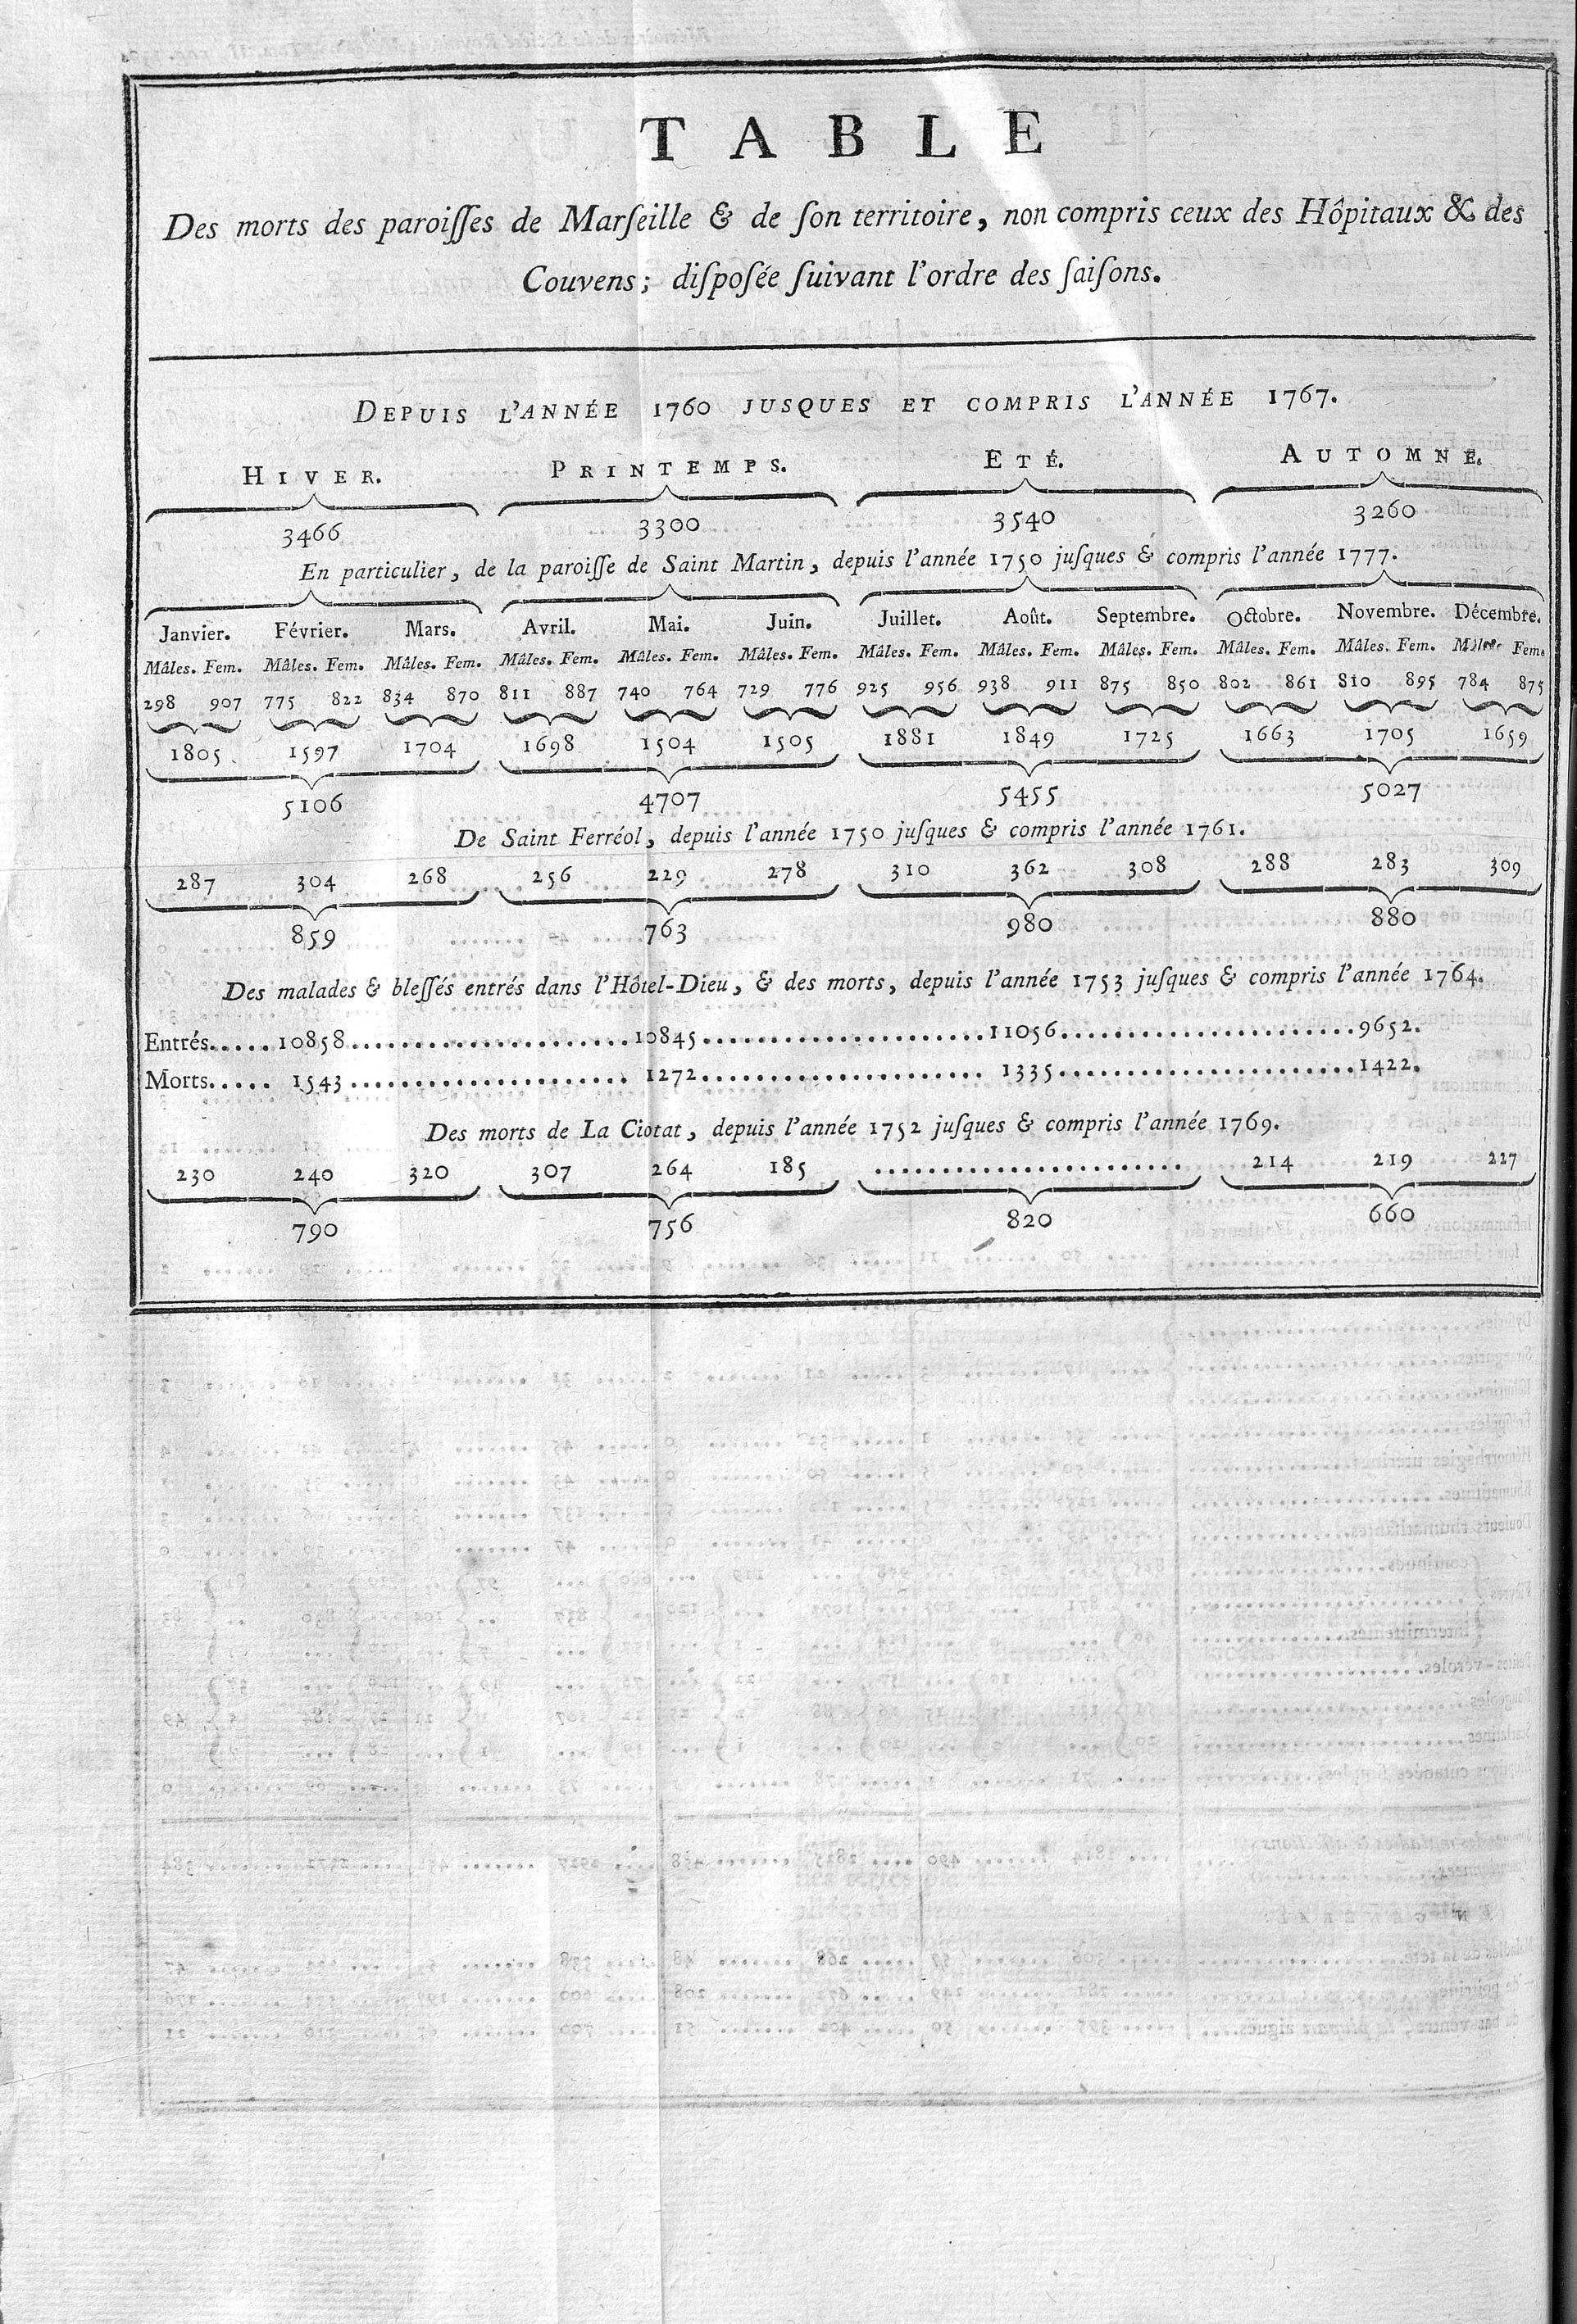 TABLE
Des morts des paroiſſes de Marſeille & de ſon territoire, non compris ceux des Hôpitaux & des
Couvens; diſpoſée ſuivant l'ordre des ſaiſons.
DEPUIS L'ANNÉE 1760 JUSQUES ET COMPRIS L'ANNÉE 1767.
HIVER. PRINTEMPS. ETÉ. AUTOMNE.
3466 3300 3540 3260
En particulier, de la paroiſſe de Saint Martin, depuis l'année 1750 juſques & compris l'année 1777.
Janvier. Février. Mars. Avril. Mai. Juin. Juillet. Août. Septembre. Octobre. Novembre. Décembre.
Mâles. Fem. Mâles. Fem. Mâles. Fem. Mâles. Fem. Mâles. Fem. Mâles. Fem. Mâles. Fem. Mâles. Fem. Mâles. Fem. Mâles. Fem. Mâles. Fem. Mâles Fem.
298 907 775 822 834 870 811 887 740 764 729 776 925 956 938 911 875 850 802 861 810 895 784 875
1805 1597 1704 1698 1504 1505 1881 1849 1725 1663 1705 1659
5106 4707 5455 5027
De Saint Ferréol, depuis l'année 1750 juſques & compris l'année 1761.
287 304 268 256 229 278 310 362 308 288 283 309
859 763 980 880
Des malades & bleſſés entrés dans l'Hôtel-Dieu, & des morts, depuis l'année 1753 juſques & compris l'année 1764.
Entrés.....10858........................10845........................11056.........................9652.
Morts..... 1543........................ 1272........................ 1335.........................1422.
Des morts de La Ciotat, depuis l'année 1752 juſques & compris l'année 1769.
230 240 320 307 264 185 ........................ 214 219 227
790 756 820 660